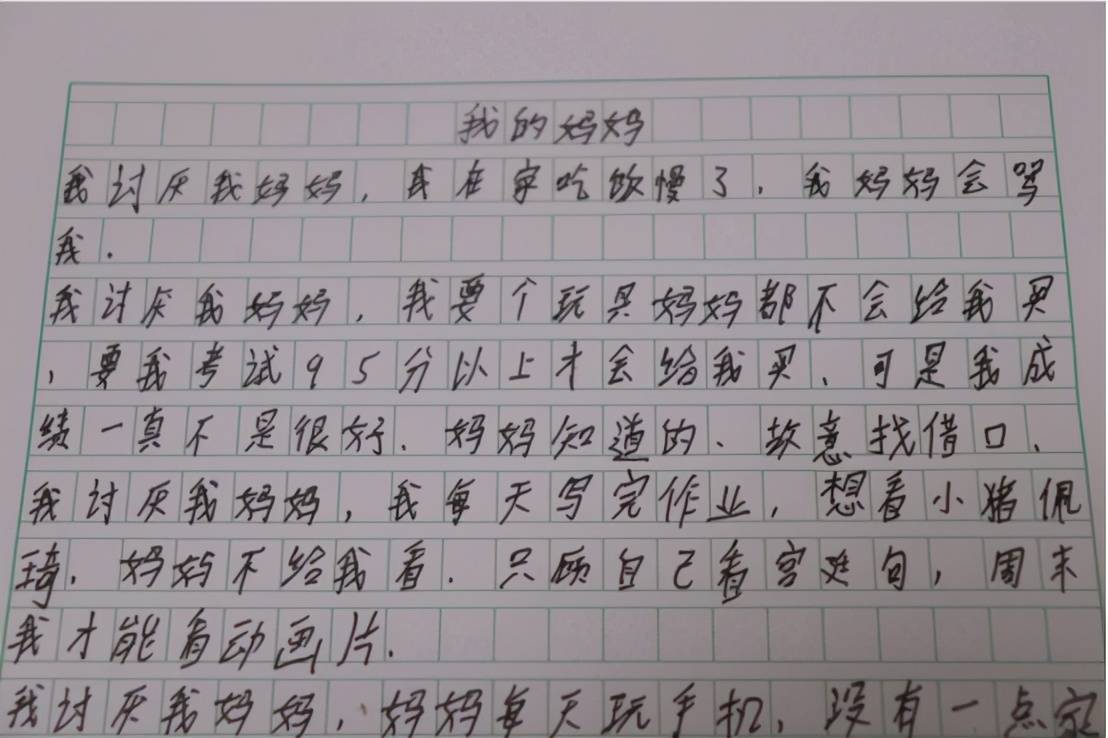 我的妈妈
我讨厌我妈妈，我在家吃饭慢了，我妈妈会骂
我.
我讨厌我妈妈，我要个玩具妈妈都不会给我买
，要我考试95分以上才会给我买、可是我成
绩一真不是很好、妈妈知道的、故意找借口、
我讨厌我妈妈，我每天写完作业，想看小猪佩
琦.妈妈不给我看.只顾自己看宫处句，周末
我才能看动画片.
我讨厌我妈妈，妈妈每天玩手机，没有一点家